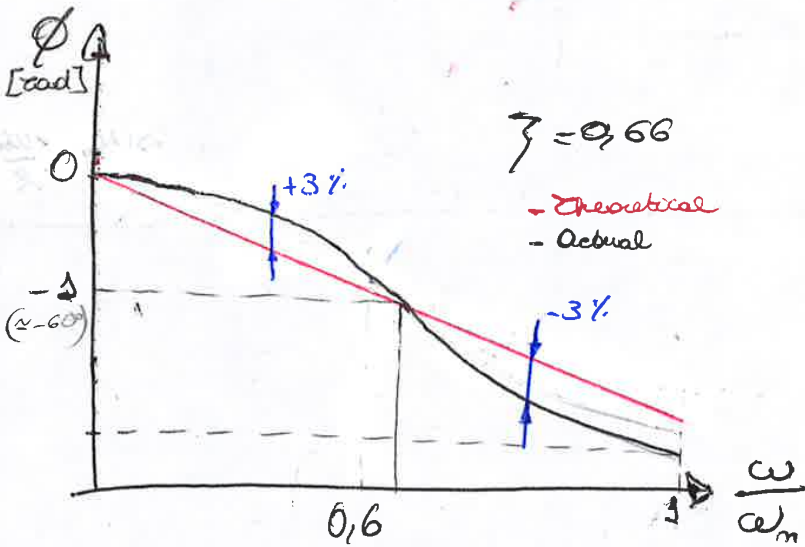 ϕ
[rad]
ζ = 0,66
0
+3%
- Theoretical
- Actual
-1
(≃-60°)
-3%
0,6
1
ω
ωn